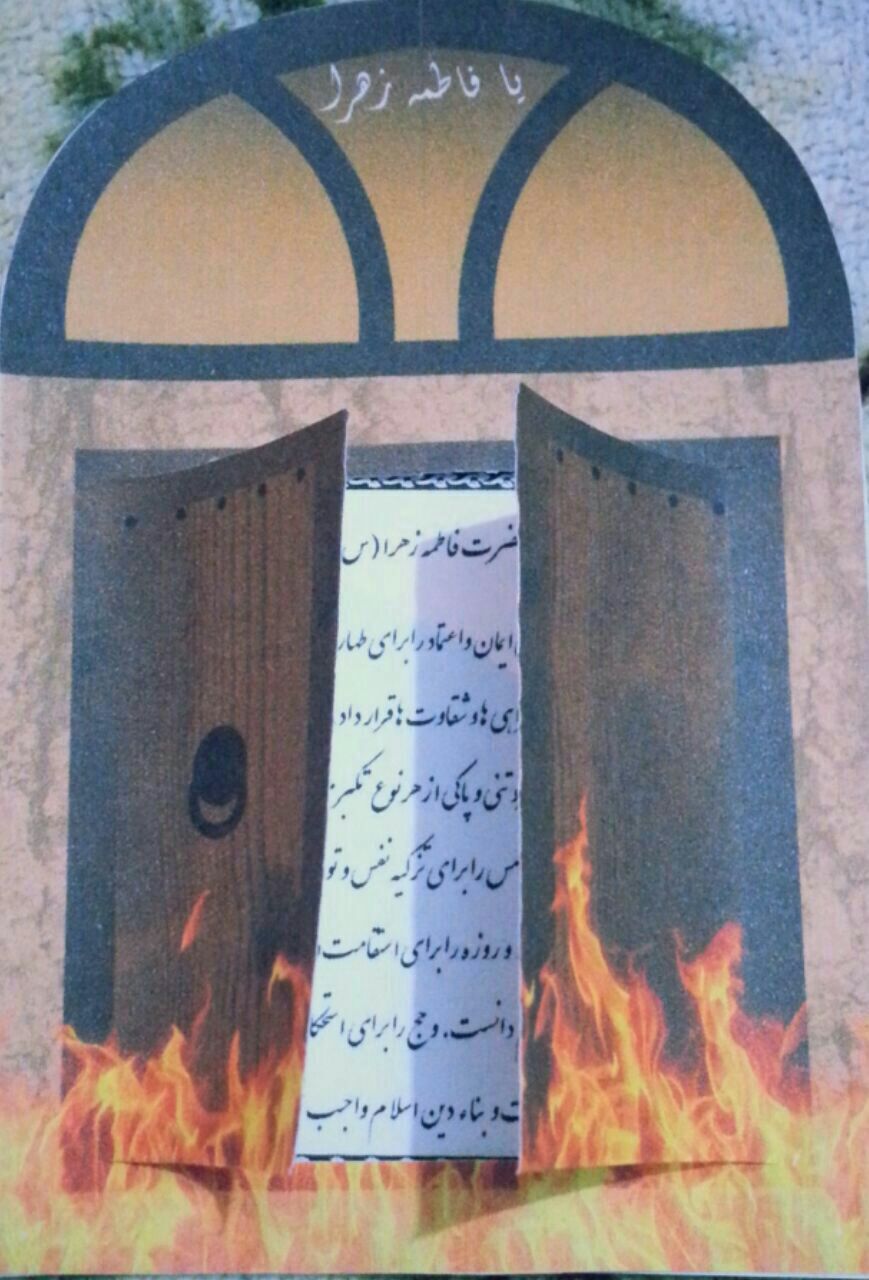 یا فاطمه زهرا
ضرت فاطمه زهرا (س
ایمان و اعتماد را برای طهار
اهی ها و شقاوت ها قرار داد
دتنی و پاکی از هر نوع تکبر
مس را برای تزکیه نفس و تو
و روزه را برای استقامت ا
دانست. و حج را برای استحکا
ت و بناء دین اسلام واجب